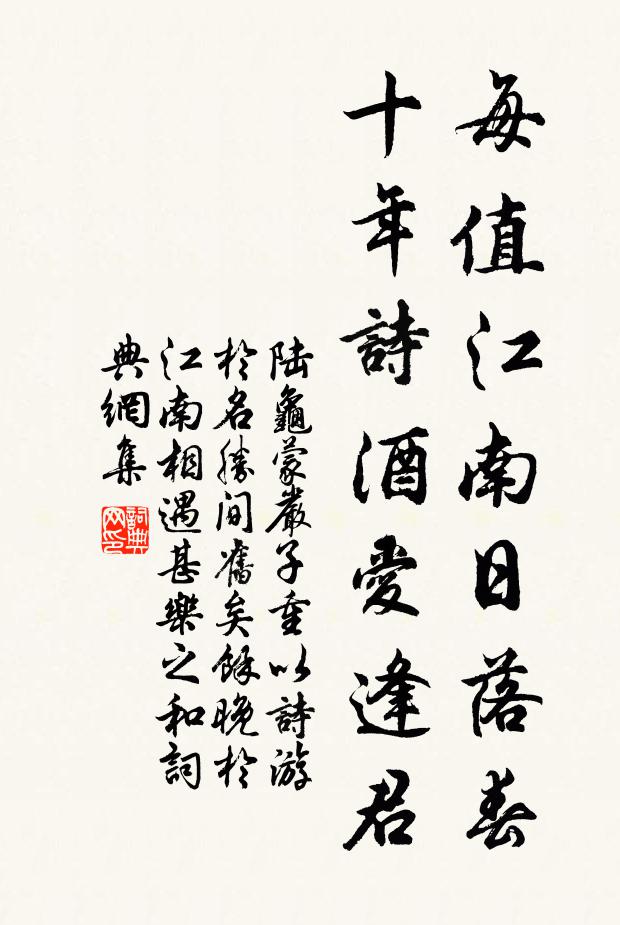 每值江南日落春
十年詩酒愛逢君
陆龜蒙嚴子重以詩游
於名勝间舊矣餘晚於
江南相遇甚樂之和詞
典網集
詞典網印